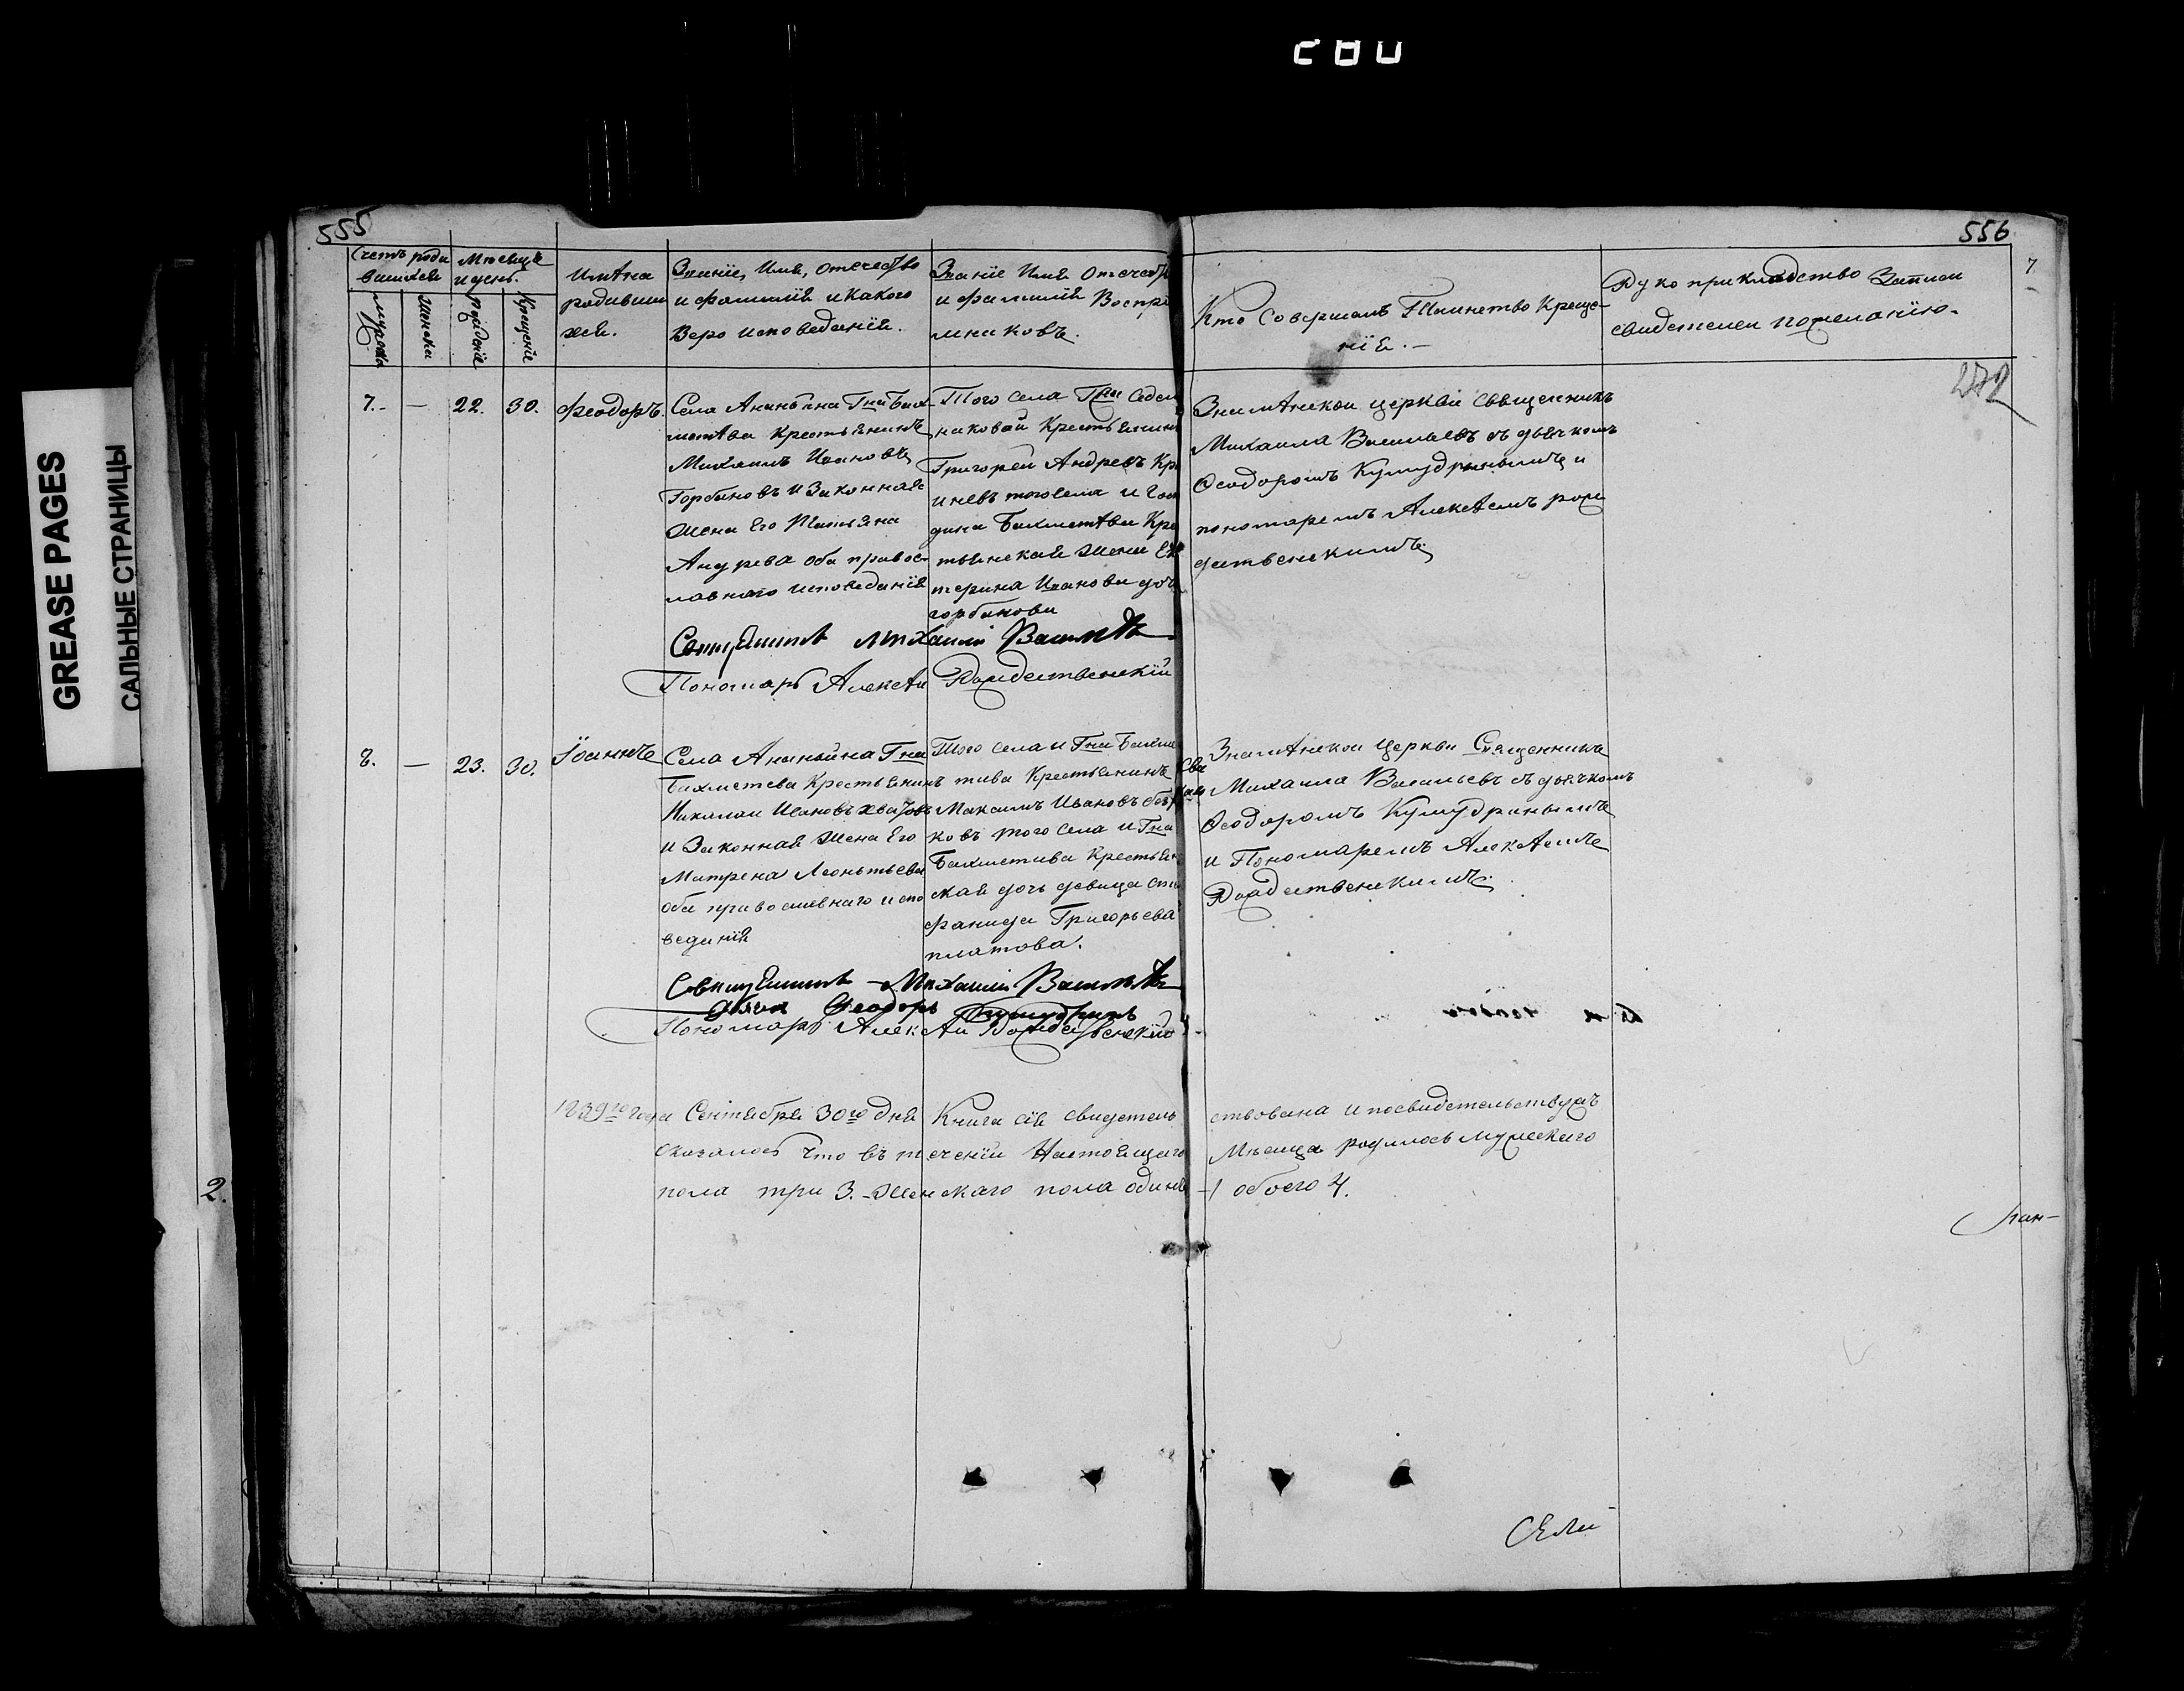 GREASE PAGES
САЛЬНЫЕ СТРАНИЦЫ
555
556
Счетъ роди
вшихся
Мѣсяцъ
и день.
мужска
женска
Рождение
Крещение
Имѣна
родивши
хся.
Званїе, Имя, отечество
и фамилїя и какого
Веро исповеданїя.
Званїе Имя Отечеств
и фамилїя Воспрі
мниковъ.
Кто Совершалъ Таинство Креще-
нїя. —
Рукоприкладство Записи
свидетелей по желанїю.
7
7. — 22. 30.
Феодоръ.
Села Ананьина Гна Бах-
метѣва Крестьянинъ
Михаилъ Ивановъ
Горбановъ и Законная
Жена Его Татьяна
Андрева оба правос-
лавнаго исповеданїя
Того села Гжи
наковой Крестьянинъ
Григорей Андревъ Кр
иневъ того села и Гос
дина Бахметѣва Кре
тьянская Жена Ек
терина Иванова доч
горбанова
Знамѣнской церкви священникъ
Михаила Васильевъ съ дьячкомъ
Феодоромъ Кумудринымъ и
пономаремъ Алексѣемъ рож
дественскимъ
Священникъ Михаилъ Васильевъ
Пономарь Алексѣй Рождественскїй
8. — 23. 30.
Їоаннъ
Села Ананьина Гна
Бахметева Крестьянинъ
Николай Ивановъ
и Законная Жена Его
Матрена Леонтьева
оба православнаго испо
веданїя
Того села и Гна Бахме
тива Крестьянинъ
Максимъ Ивановъ
ковъ того Села и Гна
Бахметива Крестьян
ская дочь девица сте
фанида Григорьева
платова.
Знамѣнской Церкви Священникъ
Михаила Васильевъ съ дьячкомъ
Феодоромъ Кумудринымъ
и Пономаремъ Алексѣемъ
Рождественскимъ.
Священникъ Михаилъ Васильевъ
Дьячок Феодоръ Кумудринъ
Пономарь Алексѣй Рождественскїй
1839го года Сентября 30го Дня Книга сїя свидетель ствована и по свидетельству
оказалось Что въ теченїи Настоящаго Мѣсяца родилось мужескаго
пола три 3. — Женскаго пола одинъ — 1 обоего 4.
2.